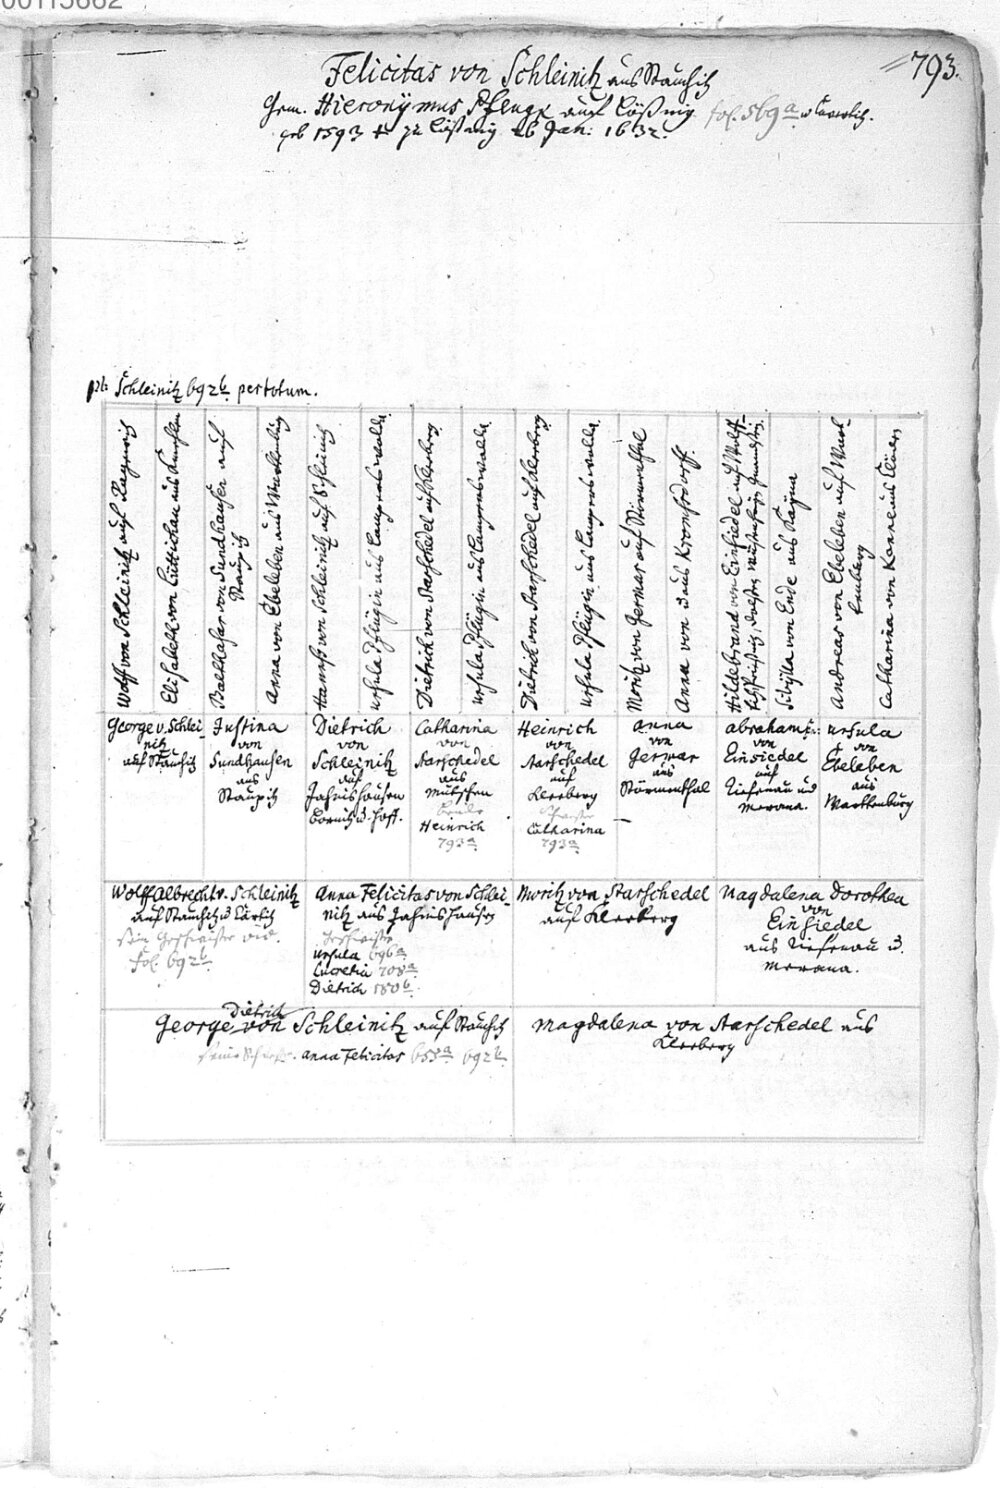 00113662
793.
Felicitas von Schleinitz aus Stauchitz
Gem. Hieronymus Pflugk auf Lößnig fol. 569a
geb 1593 † zu Lößnig 26 Jan: 1632.
Schleinitz 692b per totum.
Wolff von Schleinitz auf Ragewitz
Elisabeth von Lüttichau aus
Balthasar von Sundhausen auf
Staupitz
Anna von Ebeleben aus Warttenburg
von Schleinitz auf Schleinitz
Ursula Pflugin aus Lamperswalda
Dietrich von Starschedel auf
Ursula Pflugin aus Lamperswalda
Dietrich von Starschedel auf
Ursula Pflugin aus Lamperswalda
Moritz von Germar auf Störmenthal
Anna von aus
Hildebrand von Einsiedel auf
Sibylla von Ende aus Kayna
Andreas von Ebeleben auf
Catharina von aus
George v. Schlei-
nitz
auf Stauchitz
Justina
von
Sundhausen
aus
Staupitz
Dietrich
von
Schleinitz
auf
Jahnishausen
Bornitz u. Hoff.
Catharina
von
Starschedel
aus
Mutschen
Bruder
Heinrich
793a
Heinrich
von
Starschedel
auf
Kleeberg
Schwester
Catharina
793a
Anna
von
Germar
aus
Störmenthal
Abraham
von
Einsiedel
auf
Tiefenau und
Merana.
Ursula
von
Ebeleben
aus
Warttenburg
Wolff Albrecht v. Schleinitz
auf Stauchitz u.
sein Geschwister vid.
fol. 692b
Anna Felicitas von Schlei-
nitz aus Jahnishausen
Geschwister
Ursula 696a
Lucretia 708a
Dietrich 1506
Moritz von Starschedel
auf Kleeberg
Magdalena Dorothea
von
Einsiedel
aus Tiefenau u.
Merana.
Dietrich
George von Schleinitz auf Stauchitz
seine Schwester. Anna Felicitas 653a 692b
Magdalena von Starschedel aus
Kleeberg